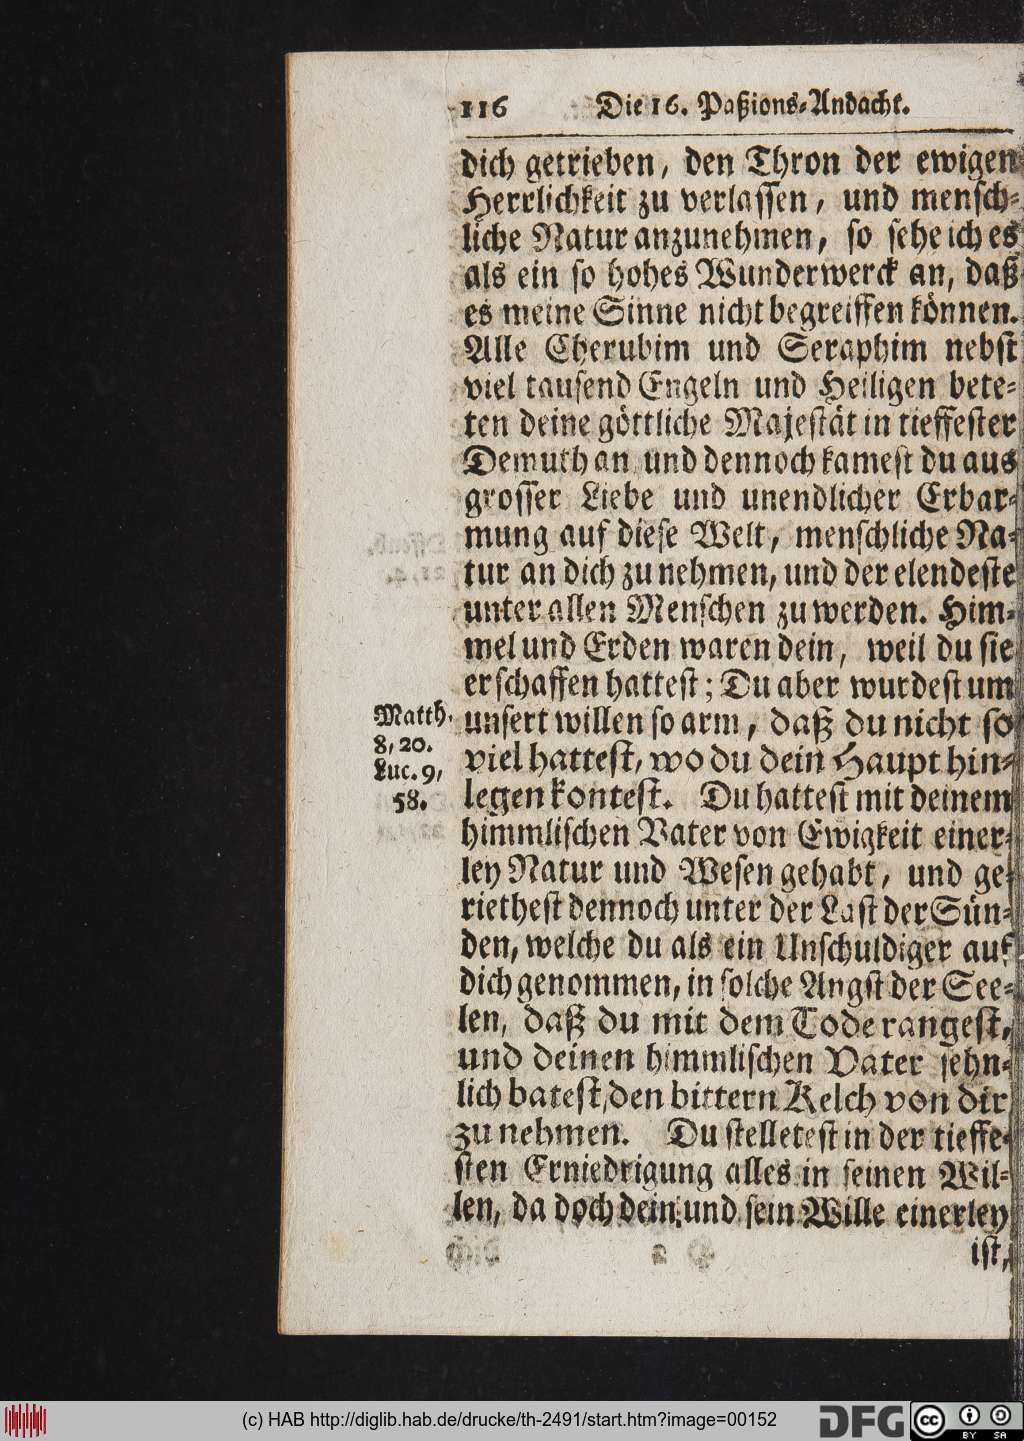 116 Die 16. Paßions-Andacht.
dich getrieben, den Thron der ewigen
Herrlichkeit zu verlassen, und mensch-
liche Natur anzunehmen, so sehe ich es
als ein so hohes Wunderwerck an, daß
es meine Sinne nicht begreiffen können.
Alle Cherubim und Seraphim nebst
viel tausend Engeln und Heiligen bete-
ten deine göttliche Majestät in tieffester
Demuth an und dennoch kamest du aus
grosser Liebe und unendlicher Erbar-
mung auf diese Welt, menschliche Na-
tur an dich zu nehmen, und der elendeste
unter allen Menschen zu werden. Him-
mel und Erden waren dein, weil du sie
erschaffen hattest; Du aber wurdest um
unsert willen so arm, daß du nicht so
viel hattest, wo du dein Haupt hin-
legen kontest. Du hattest mit deinem
himmlischen Vater von Ewigkeit einer-
ley Natur und Wesen gehabt, und ge-
riethest dennoch unter der Last der Sün-
den, welche du als ein Unschuldiger auf
dich genommen, in solche Angst der See-
len, daß du mit dem Tode rangest,
und deinen himmlischen Vater sehn-
lich batest, den bittern Kelch von dir
zu nehmen. Du stelletest in der tieffe-
sten Erniedrigung alles in seinen Wil-
len, da doch dein und sein Wille einerley
ist,
Matth.
8, 20.
Luc. 9,
58.
(c) HAB http://diglib.hab.de/drucke/th-2491/start.htm?image=00152
DFG
cc BY SA